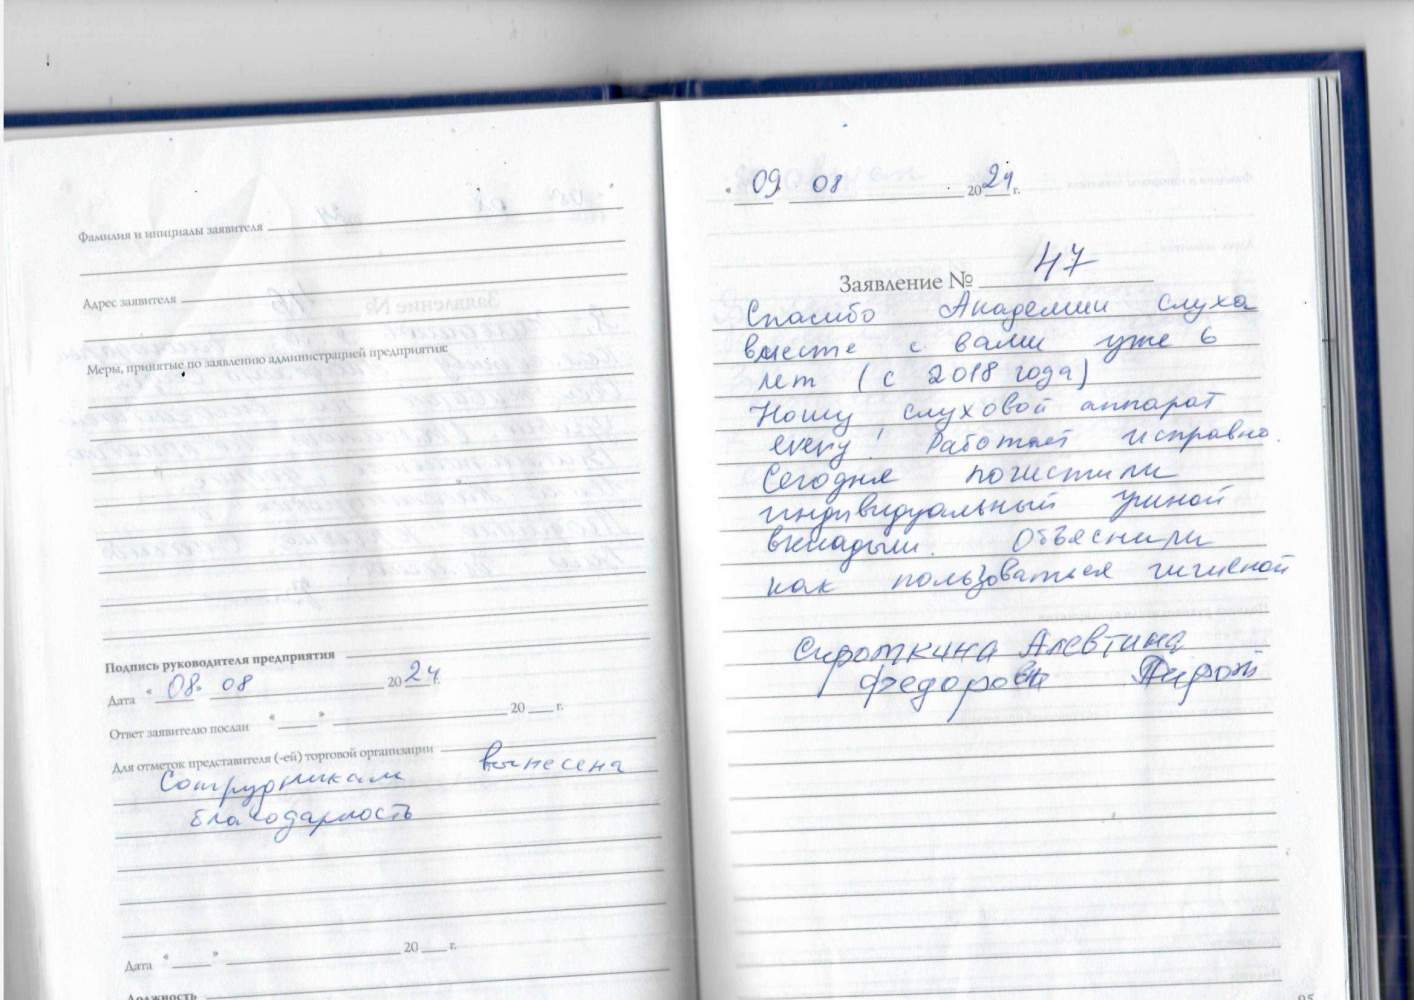 Фамилия и инициалы заявителя
Адрес заявителя
Меры, принятые по заявлению администрацией предприятия:
Подпись руководителя предприятия
Дата « 08 » 08 2024 г.
Ответ заявителю послан « » 20 г.
Для отметок представителя (-ей) торговой организации
Сотрудникам вынесена
благодарность
Дата « » 20 г.
Должность
« 09 08 2024 г.
Заявление № 47
Спасибо Академии слуха
вместе с вами уже 6
лет (с 2018 года)
Ношу слуховой аппарат
Работает исправно.
Сегодня почистили
индивидуальный ушной
вкладыш. Объяснили
как пользоваться гигиеной
Сироткина Алевтина
Федоровн
95